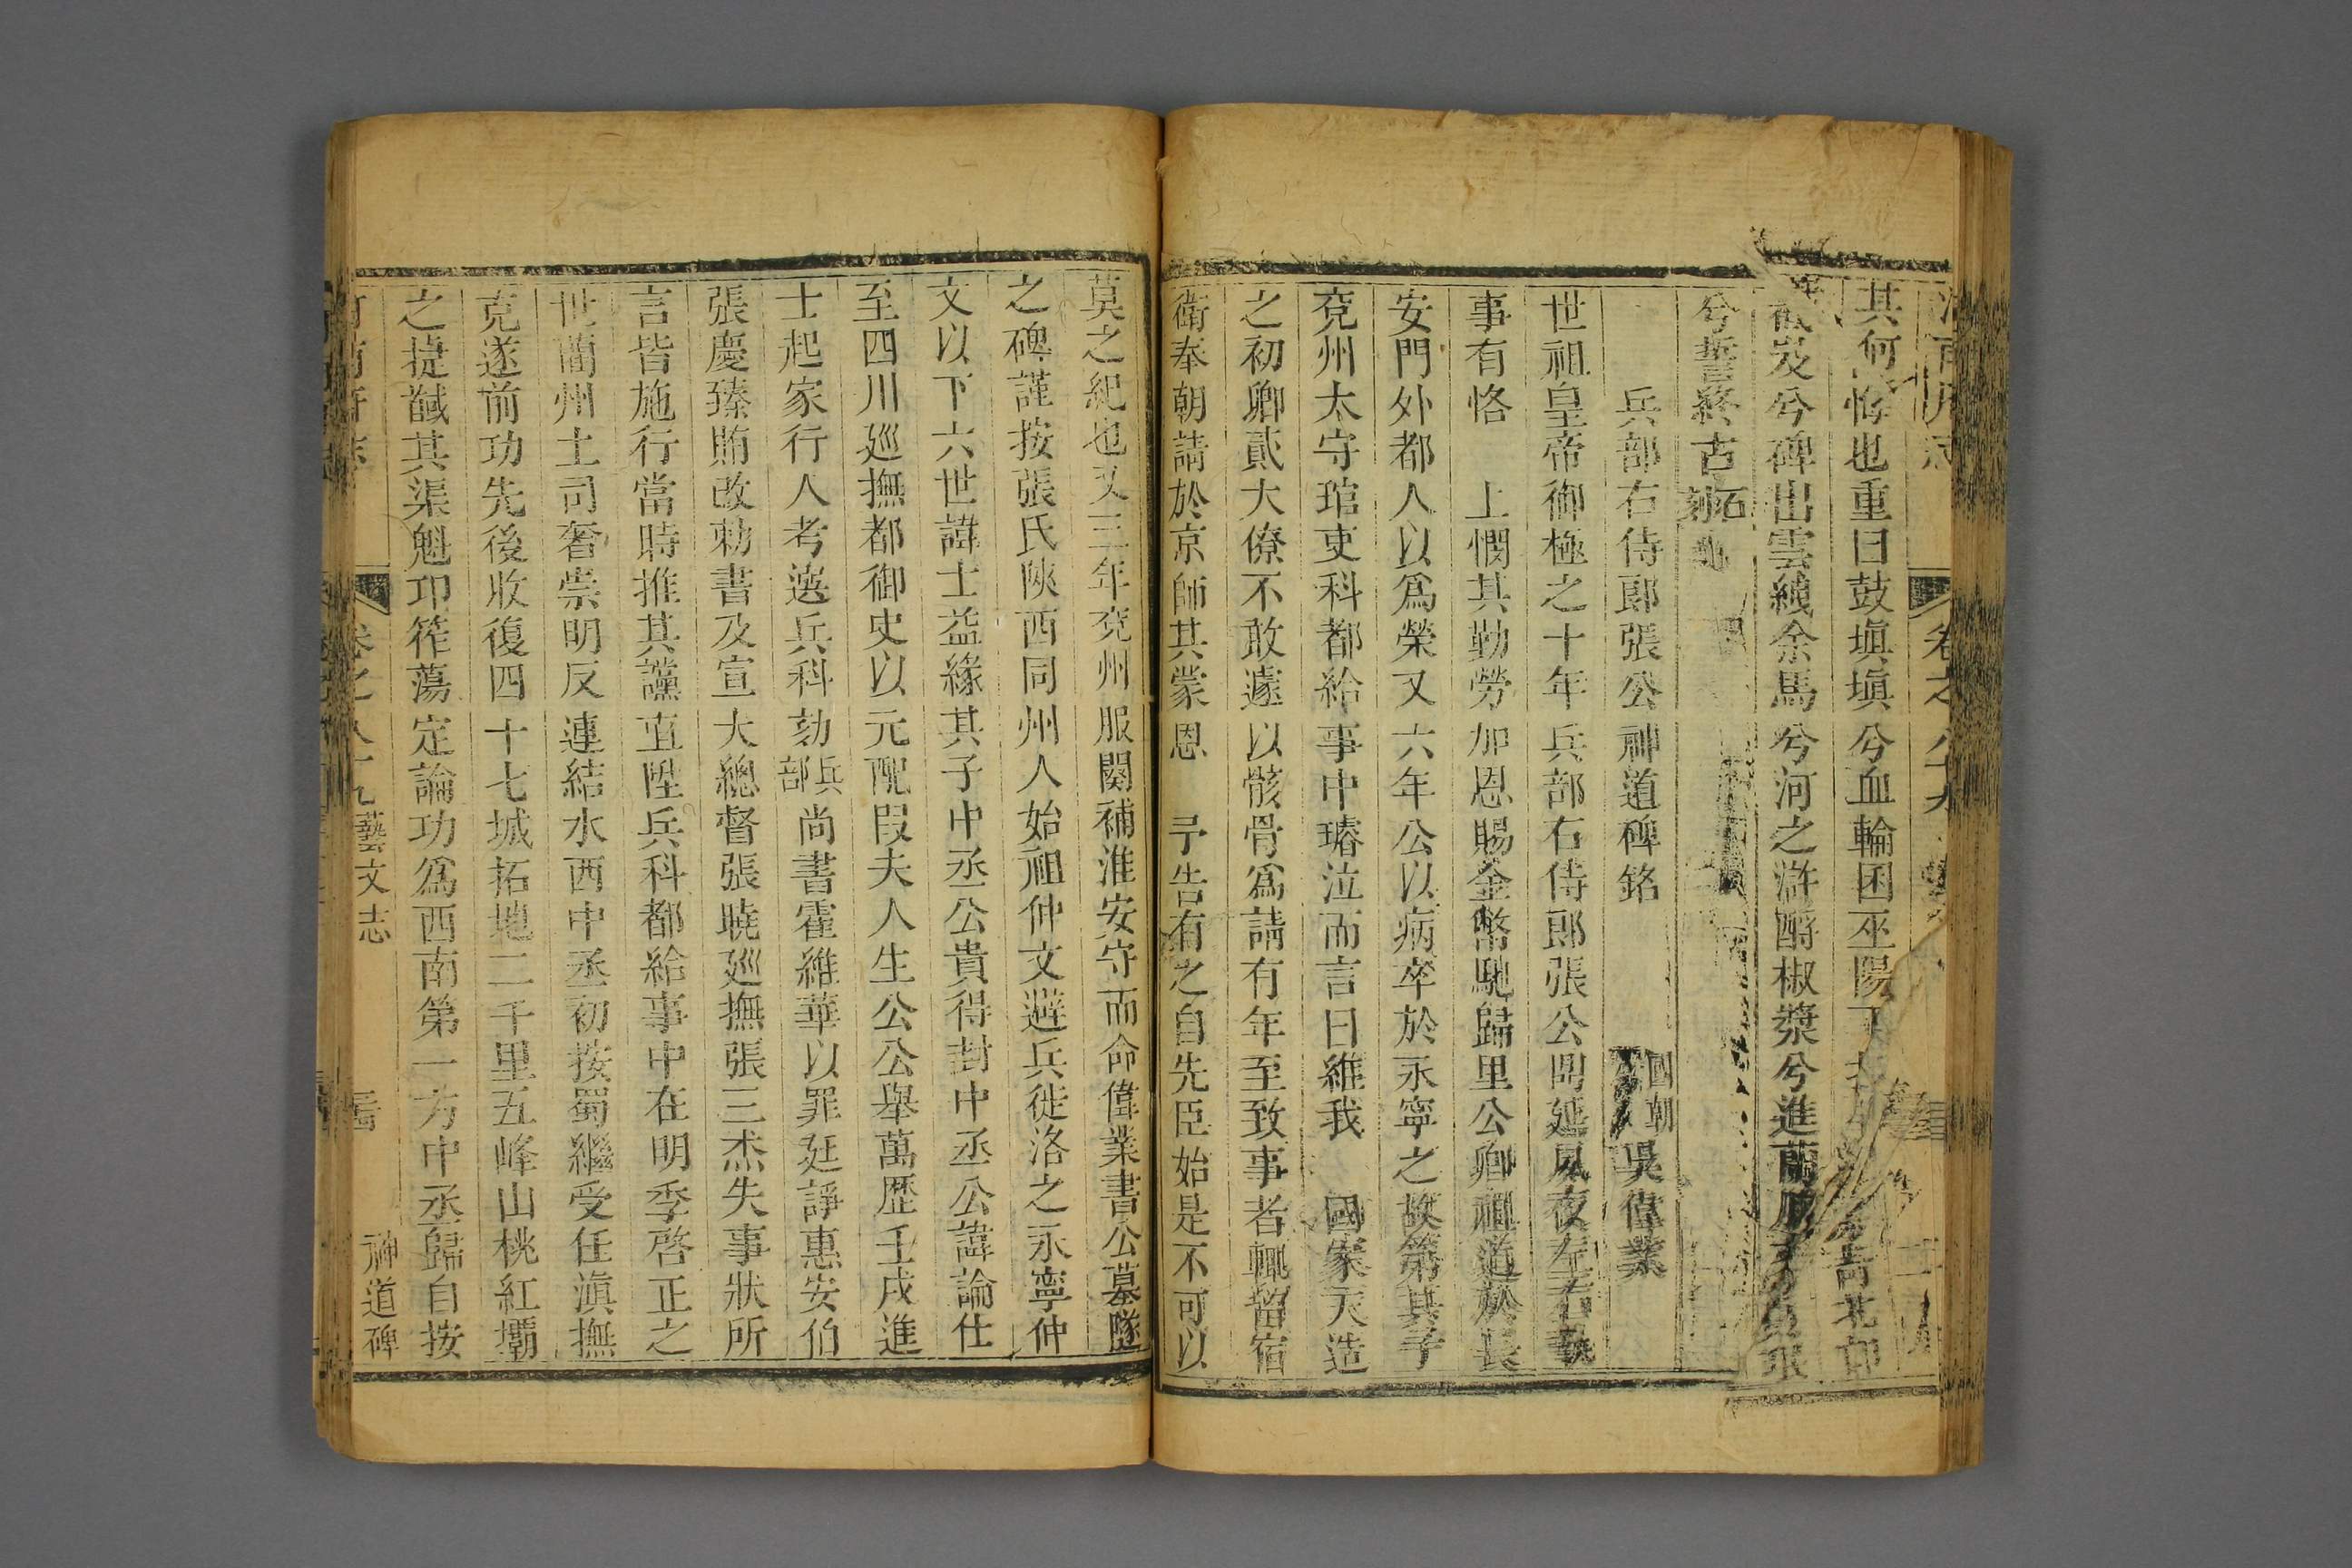 河南府志 卷之八十九
其何悔也重曰鼓塡塡兮血輪囷巫陽下兮北邙
岌兮碑出雲綫余馬兮河之滸酹椒漿兮進蘭
兮誓終古石刻
兵部右侍郎張公神道碑銘 國朝吳偉業
世祖皇帝御極之十年兵部右侍郎張公鼎延夙夜左右執
事有恪 上憫其勤勞加恩賜金幣馳歸里公卿祖道於長
安門外都人以爲榮又六年公以病卒於永寧之故第其子
兗州太守琯吏科都給事中璿泣而言曰維我 國家天造
之初卿貳大僚不敢遽以骸骨爲請有年至致事者輒留宿
衛奉朝請於京師其蒙恩 予告有之自先臣始是不可以
莫之紀也又三年兗州服闋補淮安守而命偉業書公墓隧
之碑謹按張氏陝西同州人始祖仲文避兵徙洛之永寧仲
文以下六世諱士益緣其子中丞公貴得封中丞公諱論仕
至四川廵撫都御史以元配段夫人生公公舉萬歷壬戌進
士起家行人考選兵科劾兵部尚書霍維華以罪廷諍惠安伯
張慶臻賄改勅書及宣大總督張曉廵撫張三杰失事狀所
言皆施行當時推其讜直陞兵科都給事中在明季啓正之
世藺州土司奢崇明反連結水西中丞初按蜀繼受任滇撫
克遂前功先後收復四十七城拓地二千里五峰山桃紅壩
之捷馘其渠魁邛筰蕩定論功爲西南第一方中丞歸自按
河南府志 卷之八十九藝文志 神道碑